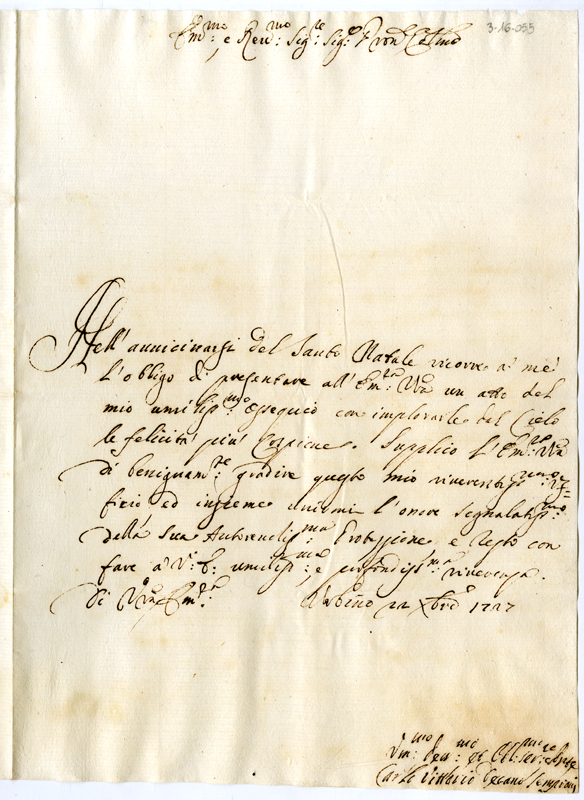 3-16-055
Em:mo e Reu:mo Sig:re Sig:re P'ron Col:mo
Nell'auuicinarsi del Santo Natale ricorre à me
l'obligo di presentare all'Em:za Vra un atto del
mio umiliss:mo ossequio con implorarle dal Cielo
le felicità più copiose. Supplico l'Em:za Vra
di benignam:te gradire questo mio riuerentiss:mo Vf=
fizio ed insieme l'onore segnalatiss:mo
della sua Autoreuoliss:ma Protezzione e resto con
fare à V: E: umiliss:ma, e profondiss:ma riuerenza.
Di Vra Em:za Vrbino 22 Xbre 1727
Vm:mo Deu:mo et Obl:mo Ser:re
Carlo Vittorio Semproni